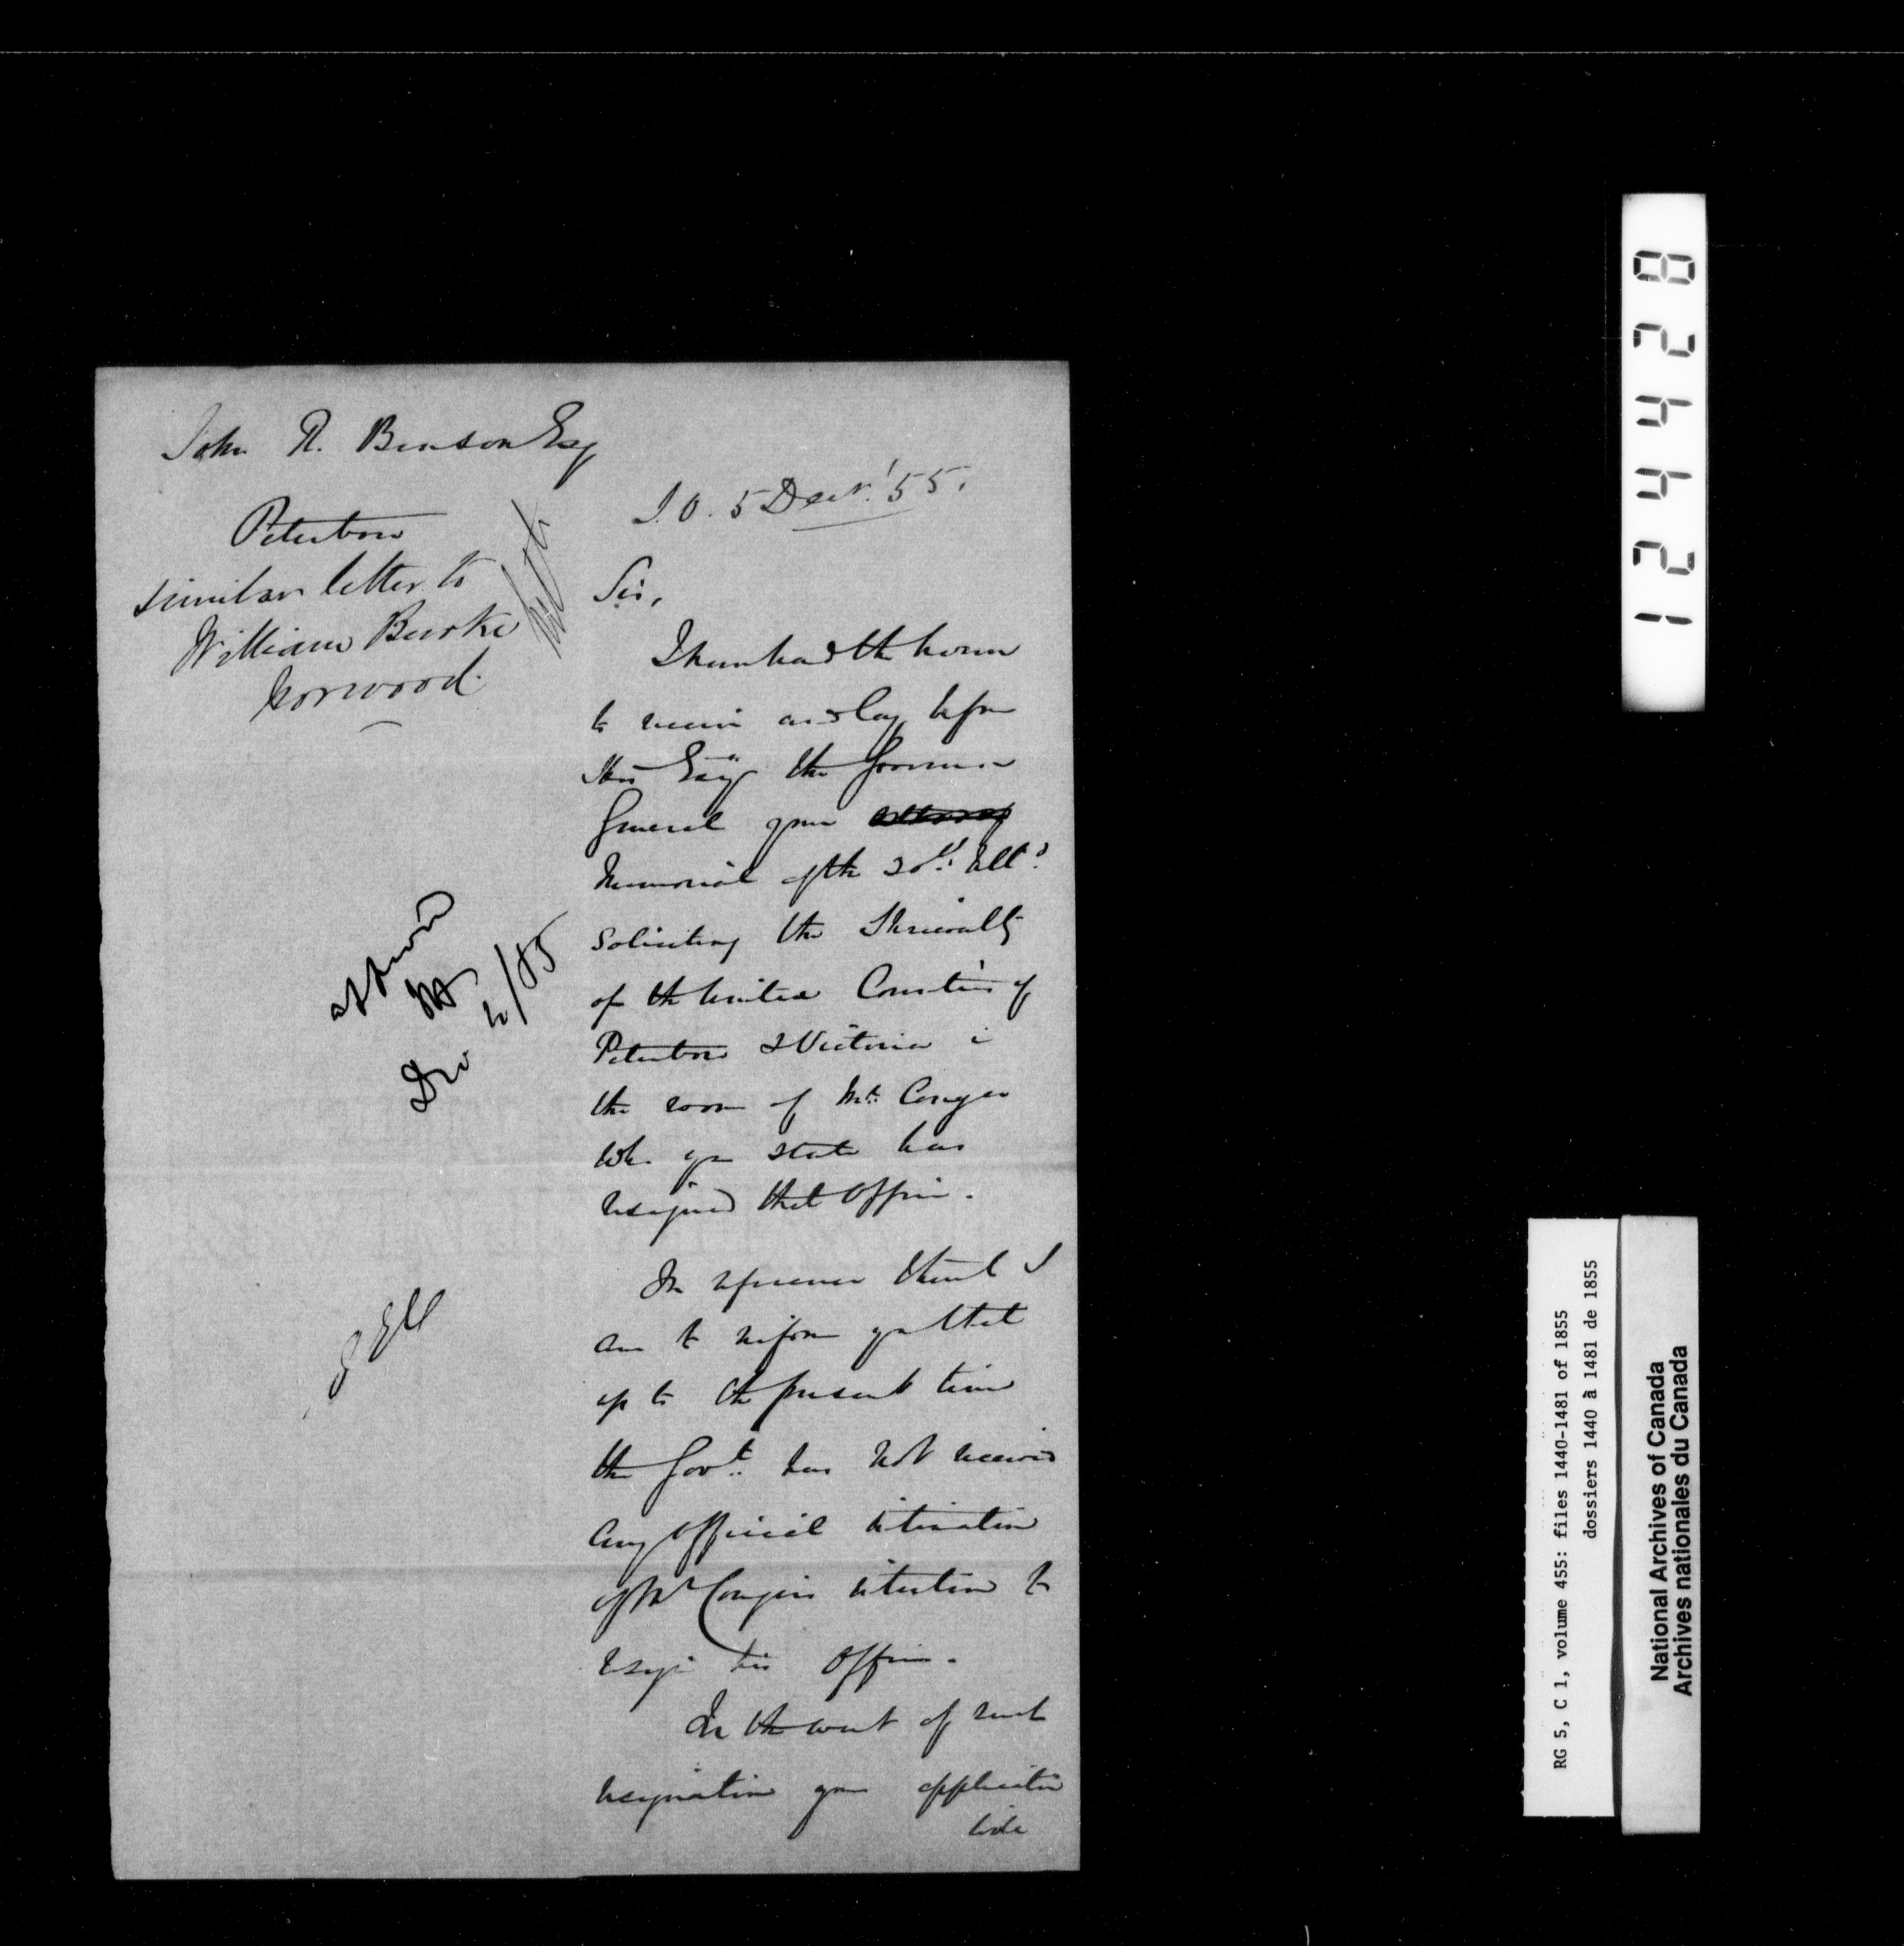 John R. Benson Esq
Peterboro
similar letter to
William Burke
Norwood.
S.O. 5 Decr. '55.
Sir,
I have had the honor
to receive and lay before
His Excy the Governor
General your
Memorial of the 30th Ulto.
Soliciting the Shrievalty
of the United Counties of
Peterboro & Victoria in
the room of Mr. Conger
who you state has
resigned that Office.
In reference thereto I
am to inform you that
up to the present time
the Govt. has not received
any official intimation
of Mr Conger's intention to
resign his Office.
In the event of such
resignation your application
will
approved
Dec
EGH
8
2
4
4
2
1
RG 5, C 1, volume 455: files 1440-1481 of 1855
dossiers 1440 à 1481 de 1855
National Archives of Canada
Archives nationales du Canada